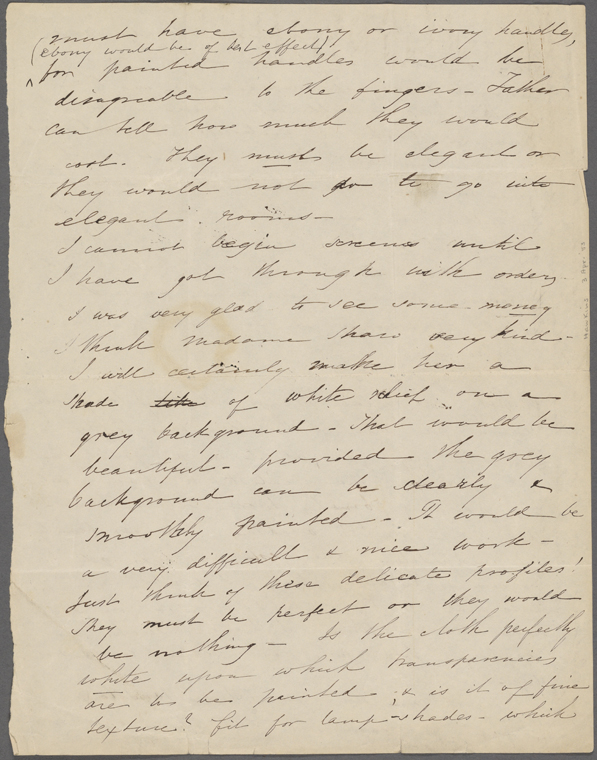 must have ebony or ivory handles,
(ebony would be of best effect)
for painted handles would be
disagreable to the fingers - Father
can tell how much they would
cost. They must be elegant or
they would not do to go into
elegant rooms -
I cannot begin screens until
I have got through with orders
I was very glad to see some money
I think madame Shaw very kind -
I will certainly make her a
shade like of white relief on a
grey background - That would be
beautiful - provided the grey
background can be clearly &
smoothly painted - It would be
a very difficult & nice work -
Just think of these delicate profiles!
They must be perfect or they would
be nothing - Is the cloth perfectly
white upon which transparencies
are to be painted, & is it of fine
texture? fit for lamp-shades - which